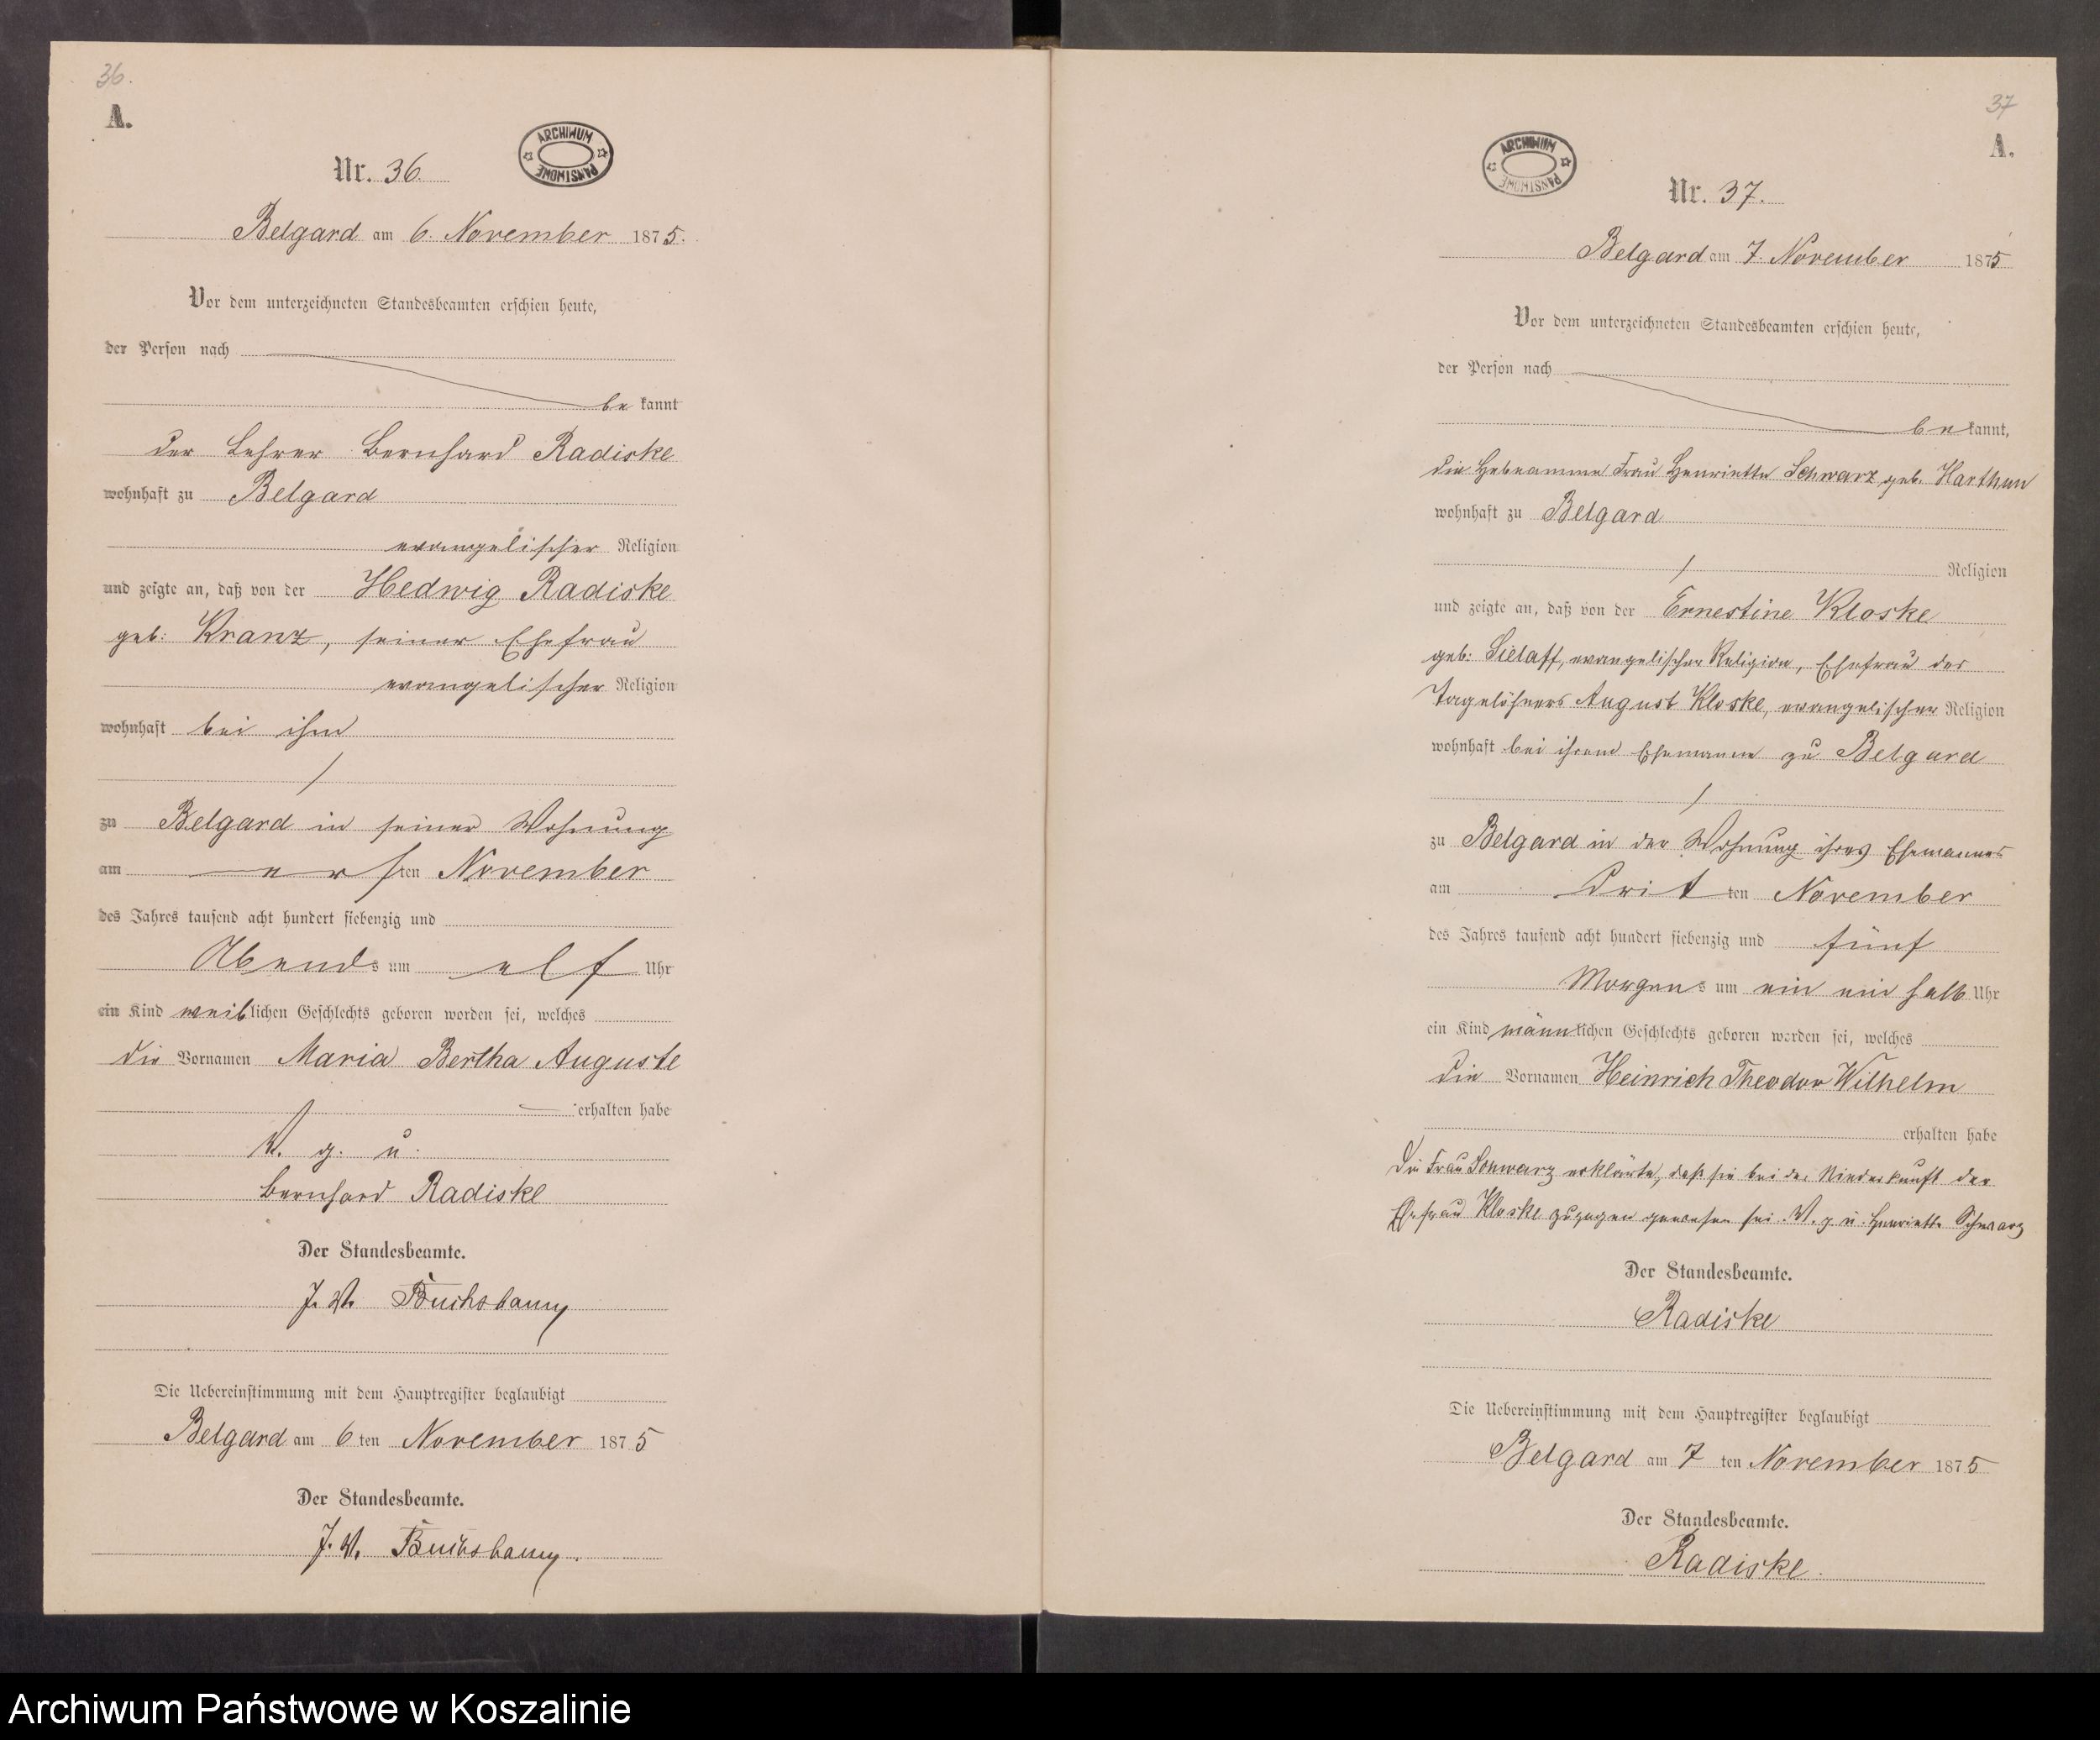 36.
A.
ARCHIWUM PAŃSTWOWE
Nr. 36.
Belgard am 6. November 1875.
Vor dem unterzeichneten Standesbeamten erschien heute,
der Person nach
bekannt
der Lehrer Bernhard Radiske
wohnhaft zu Belgard
evangelischer Religion
und zeigte an, daß von der Hedwig Radiske
geb: Kranz, seiner Ehefrau
evangelischer Religion
wohnhaft bei ihm
zu Belgard in seiner Wohnung
am ersten November
des Jahres tausend acht hundert siebenzig und
Abends um elf Uhr
ein Kind weiblichen Geschlechts geboren worden sei, welches
die Vornamen Maria Bertha Auguste
erhalten habe
V. g. u.
Bernhard Radiske
Der Standesbeamte.
J. V. Buchsbaum
Die Uebereinstimmung mit dem Hauptregister beglaubigt
Belgard am 6 ten November 1875
Der Standesbeamte.
J. V. Buchsbaum.
37
A.
ARCHIWUM PAŃSTWOWE
Nr. 37.
Belgard am 7. November 1875
Vor dem unterzeichneten Standesbeamten erschien heute,
der Person nach
bekannt,
die Hebeamme Frau Henriette Schwarz geb. Harthun
wohnhaft zu Belgard
Religion
und zeigte an, daß von der Ernestine Kloske
geb: Sielaff, evangelischer Religion, Ehefrau des
Tagelöhners August Kloske, evangelischer Religion
wohnhaft bei ihrem Ehemanne zu Belgard
zu Belgard in der Wohnung ihres Ehemannes
am Dritten November
des Jahres tausend acht hundert siebenzig und fünf
Morgens um ein ein halb Uhr
ein Kind männlichen Geschlechts geboren worden sei, welches
die Vornamen Heinrich Theodor Wilhelm
erhalten habe
Die Frau Schwarz erklärte, daß sie bei der Niederkunft der
Ehefrau Kloske zugegen gewesen sei. V. g. u. Henriette Schwarz
Der Standesbeamte.
Radiske
Die Uebereinstimmung mit dem Hauptregister beglaubigt
Belgard am 7 ten November 1875
Der Standesbeamte.
Radiske.
Archiwum Państwowe w Koszalinie